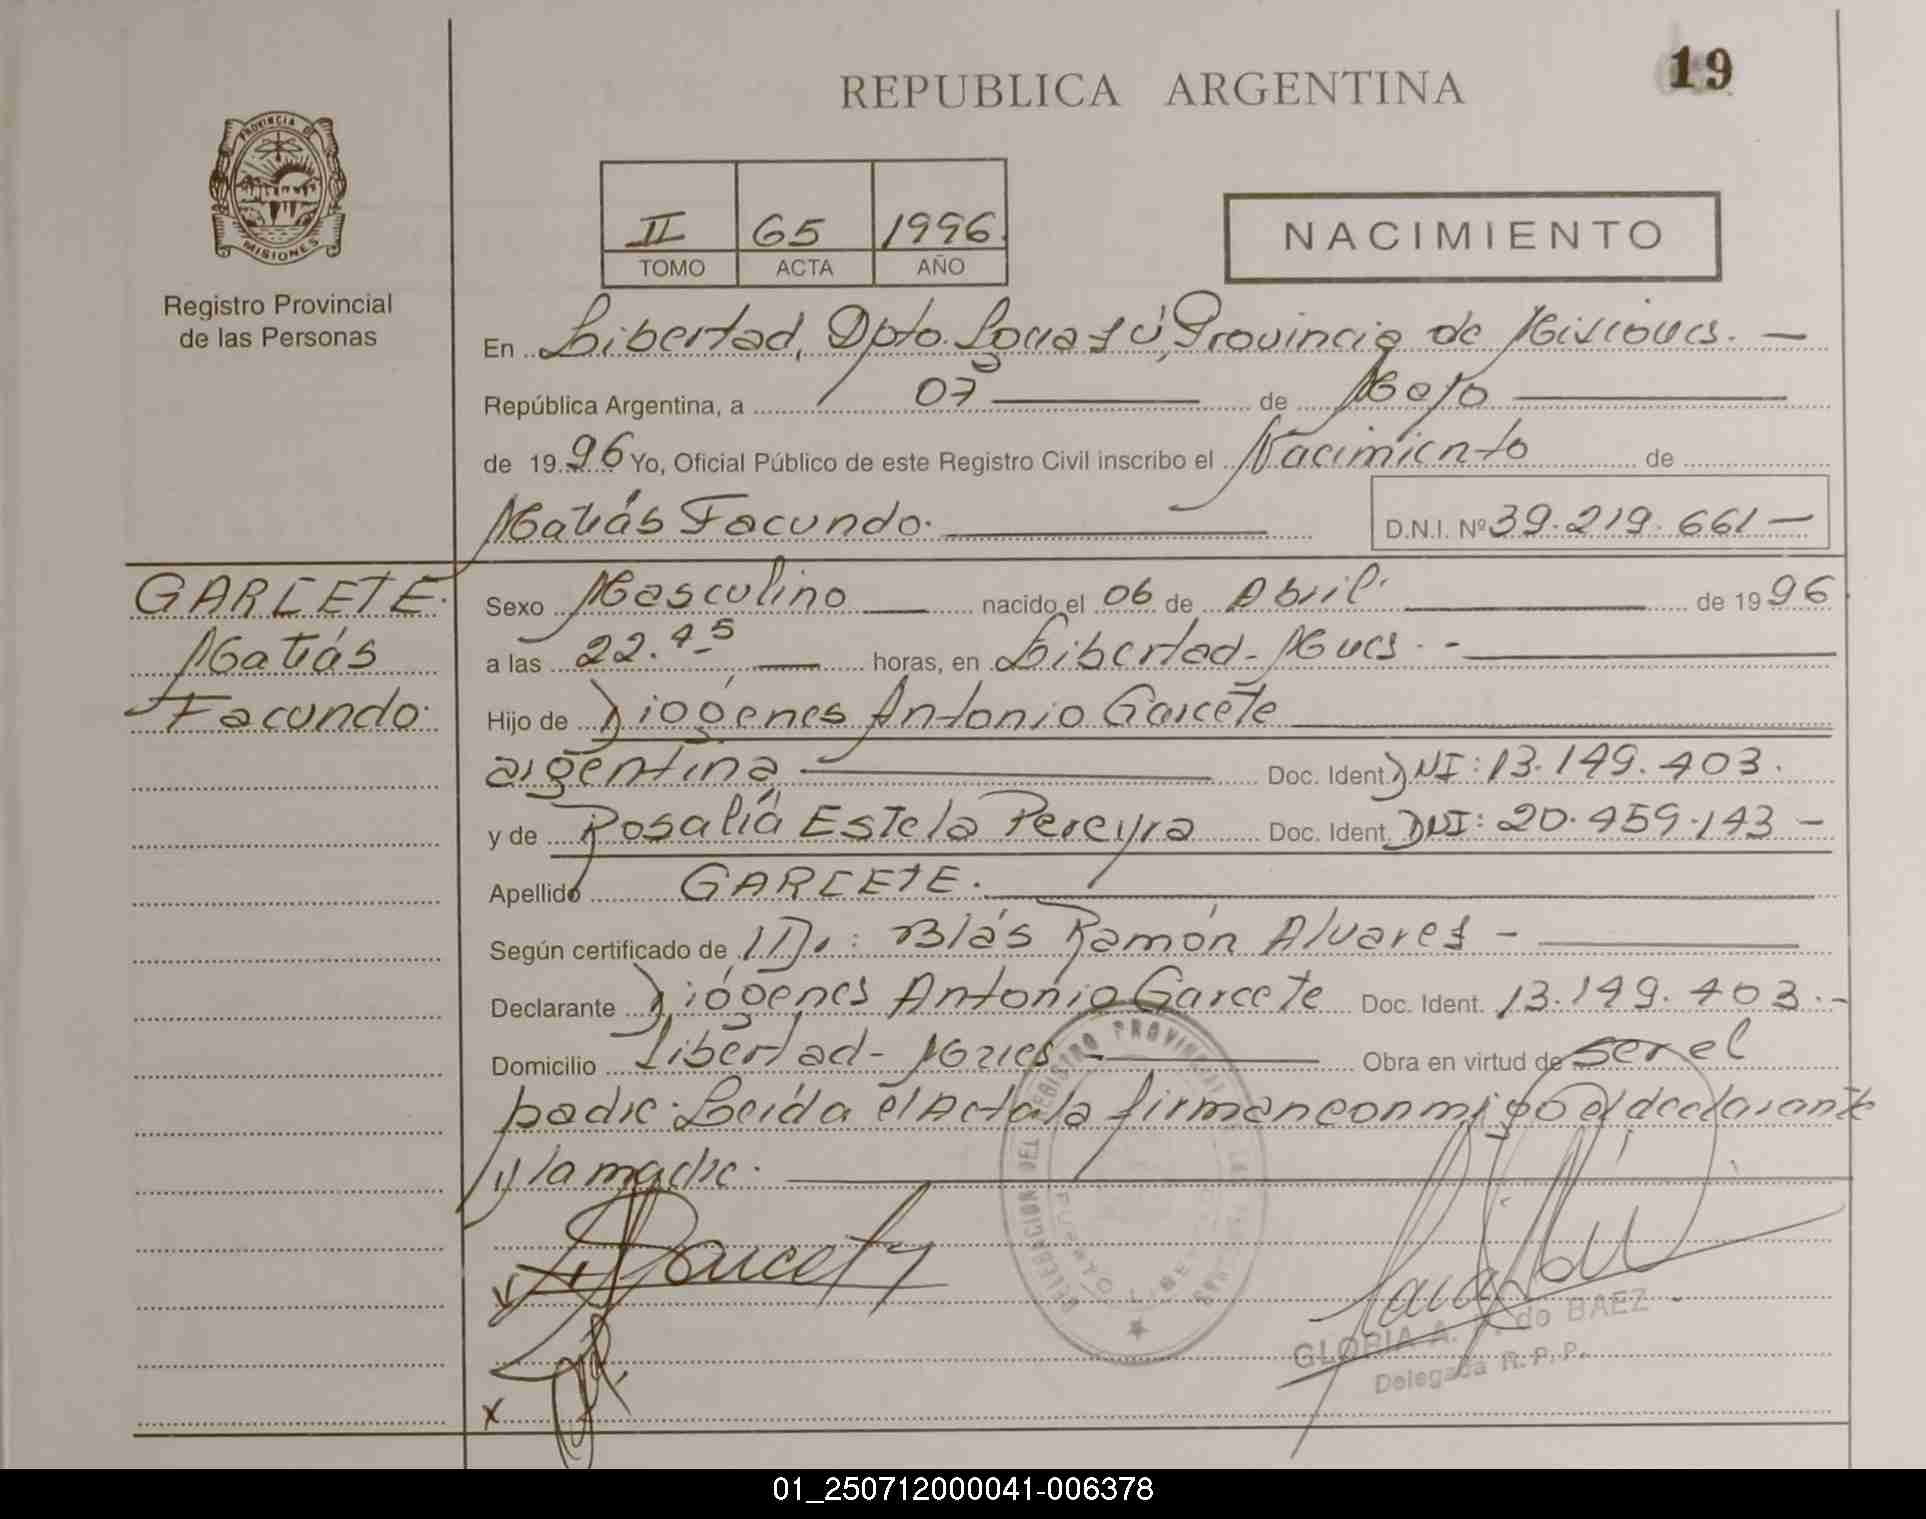 19
REPUBLICA ARGENTINA
PROVINCIA DE
MISIONES
Registro Provincial
de las Personas
II 65 1996.
TOMO ACTA AÑO
NACIMIENTO
En Libertad, Dpto. Provincia de Misiones. —
República Argentina, a 07 de Mayo
de 1996 Yo, Oficial Público de este Registro Civil inscribo el Nacimiento de
Matiás Facundo. D.N.I. Nº 39.219.661 —
GARCETE.
Matiás
Facundo.
Sexo Masculino nacido el 06 de Abril de 1996
a las 22.45 horas, en Libertad - Mnes. -
Hijo de Diógenes Antonio Garcete
argentina Doc. Ident. DNI: 13.149.403.
y de Rosalía Estela Pereyra Doc. Ident. DNI: 20.459.143 —
Apellido GARCETE.
Según certificado de Blás Ramón Alvares -
Declarante Diógenes Antonio Garcete Doc. Ident. 13.149.403.-
Domicilio Libertad - Mnes - Obra en virtud de ser el
padre. Leída el Acta la firman conmigo el declarante
y la madre.
GLORIA A. de BAEZ
Delegada R.P.P.
x
01_250712000041-006378